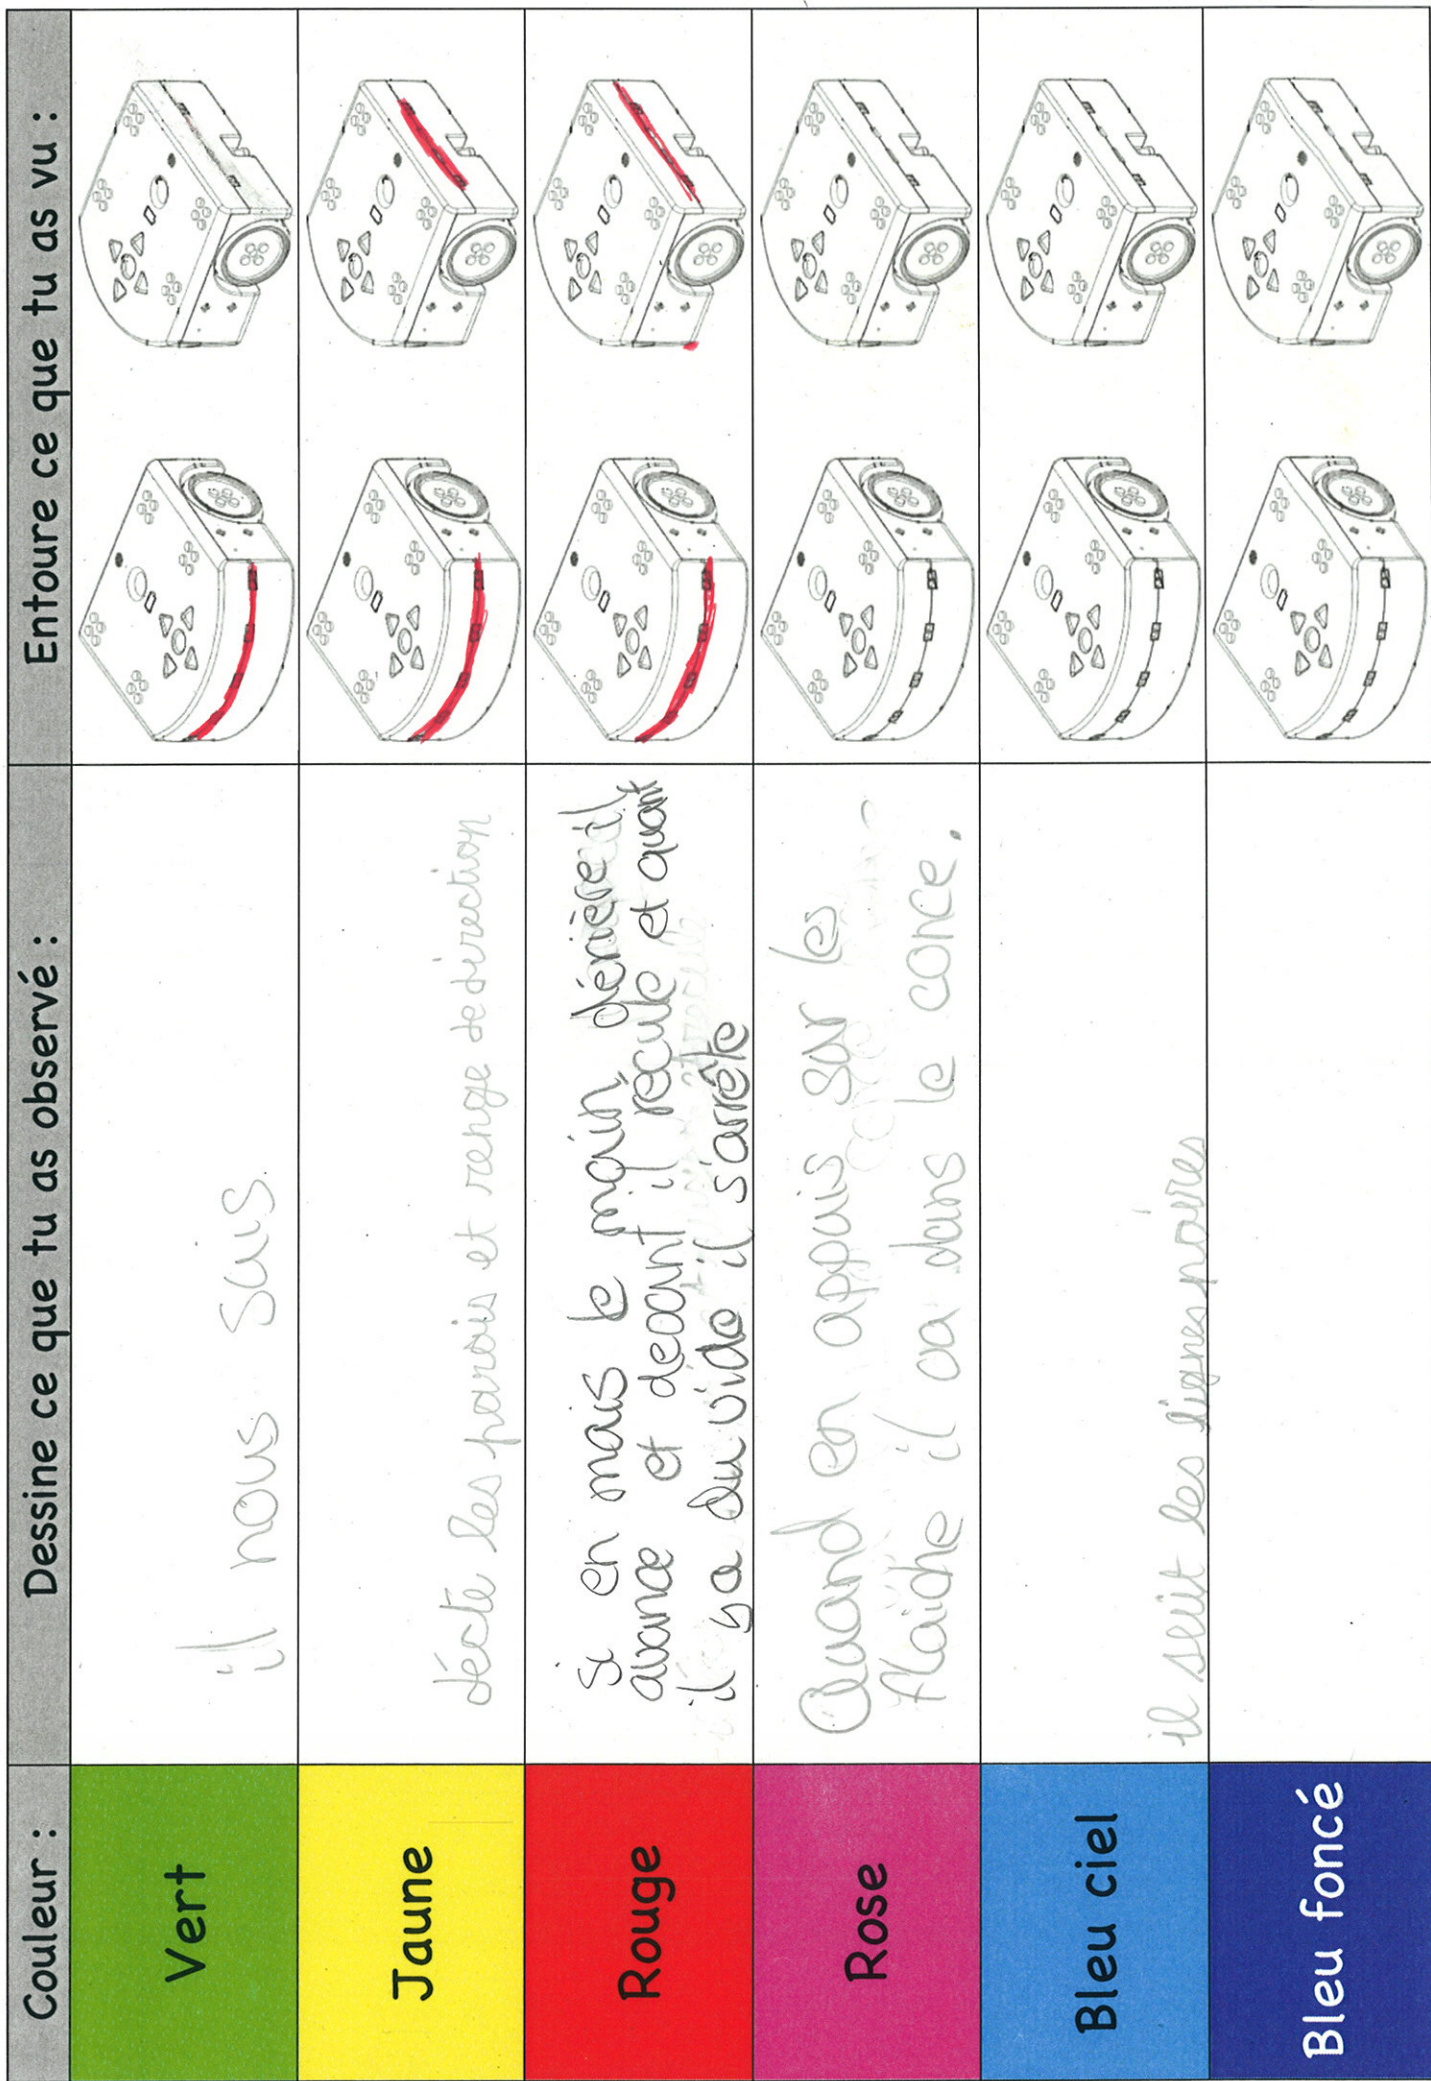 Couleur :
Dessine ce que tu as observé :
Entoure ce que tu as vu :
Vert
il nous suis
Jaune
décte les parois et renge de direction
Rouge
Si en mais le main dérière il
avance et devant il recule et quant
il y a du vide il s'arrête
Rose
Quand en appuis sur les
flaiche il va dans le conce.
Bleu ciel
il suit les lignes noires
Bleu foncé